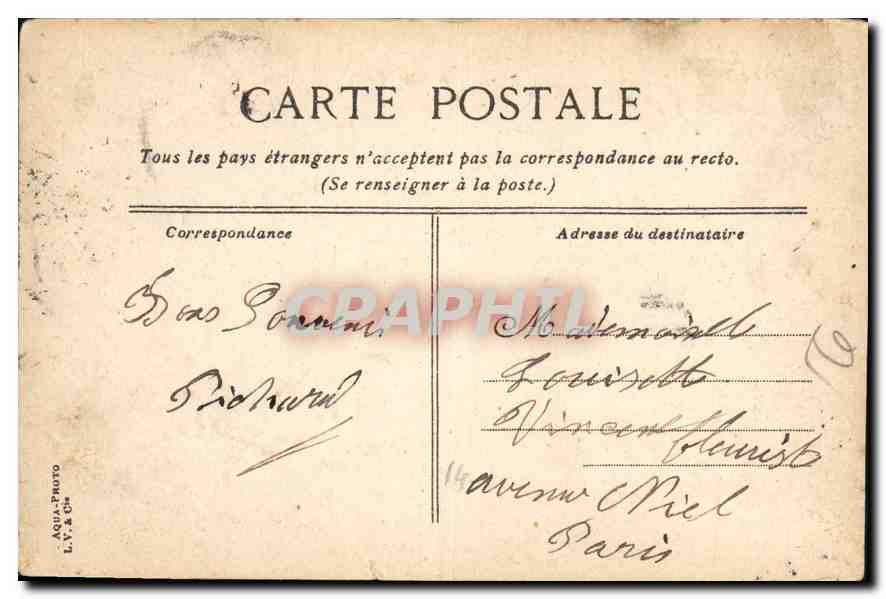 CARTE POSTALE
Tous les pays étrangers n'acceptent pas la correspondance au recto.
(Se renseigner à la poste.)
Correspondance
Bons Souvenirs
Richard
AQUA-PHOTO
L.V. & Cie
Adresse du destinataire
Mademoiselle
Louisette
Vincent fleuriste
14 avenue Niel
Paris
CPAPHIL